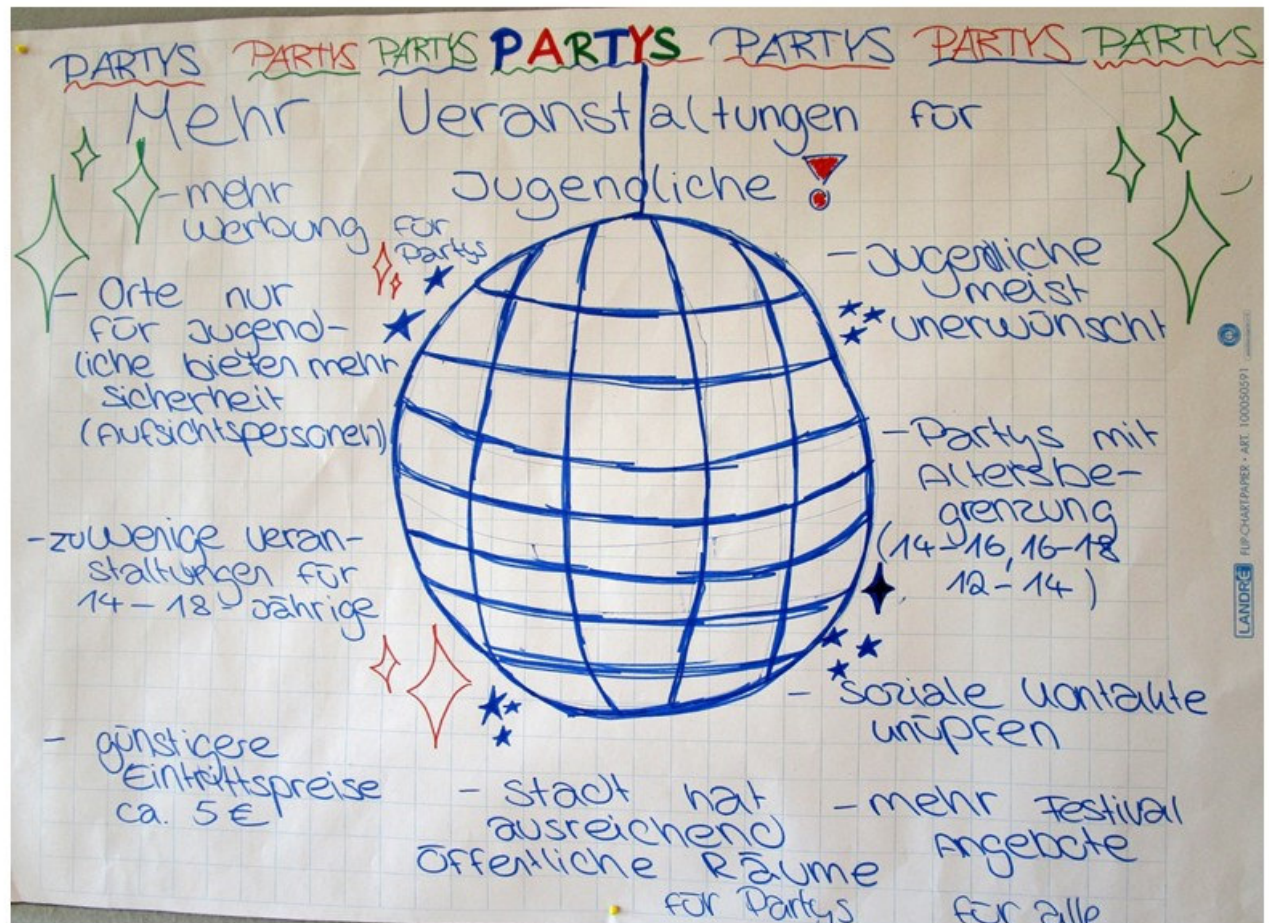 PARTYS PARTYS PARTYS PARTYS PARTYS PARTYS PARTYS
Mehr Veranstaltungen für
Jugendliche !
- mehr
Werbung für
Partys
- Orte nur
für Jugend-
liche bieten mehr
Sicherheit
(Aufsichtspersonen)
- zu wenige Veran-
staltungen für
14 - 18 - Jährige
- günstigere
Eintrittspreise
ca. 5 €
- Jugendliche
meist
unerwünscht
- Partys mit
Altersbe-
grenzung
(14-16, 16-18
12-14)
- Soziale Kontakte
knüpfen
- Stadt hat
ausreichend
öffentliche Räume
für Partys
- mehr Festival
Angebote
für alle
LANDRÉ FLIP-CHART-PAPIER · ART. 100050591